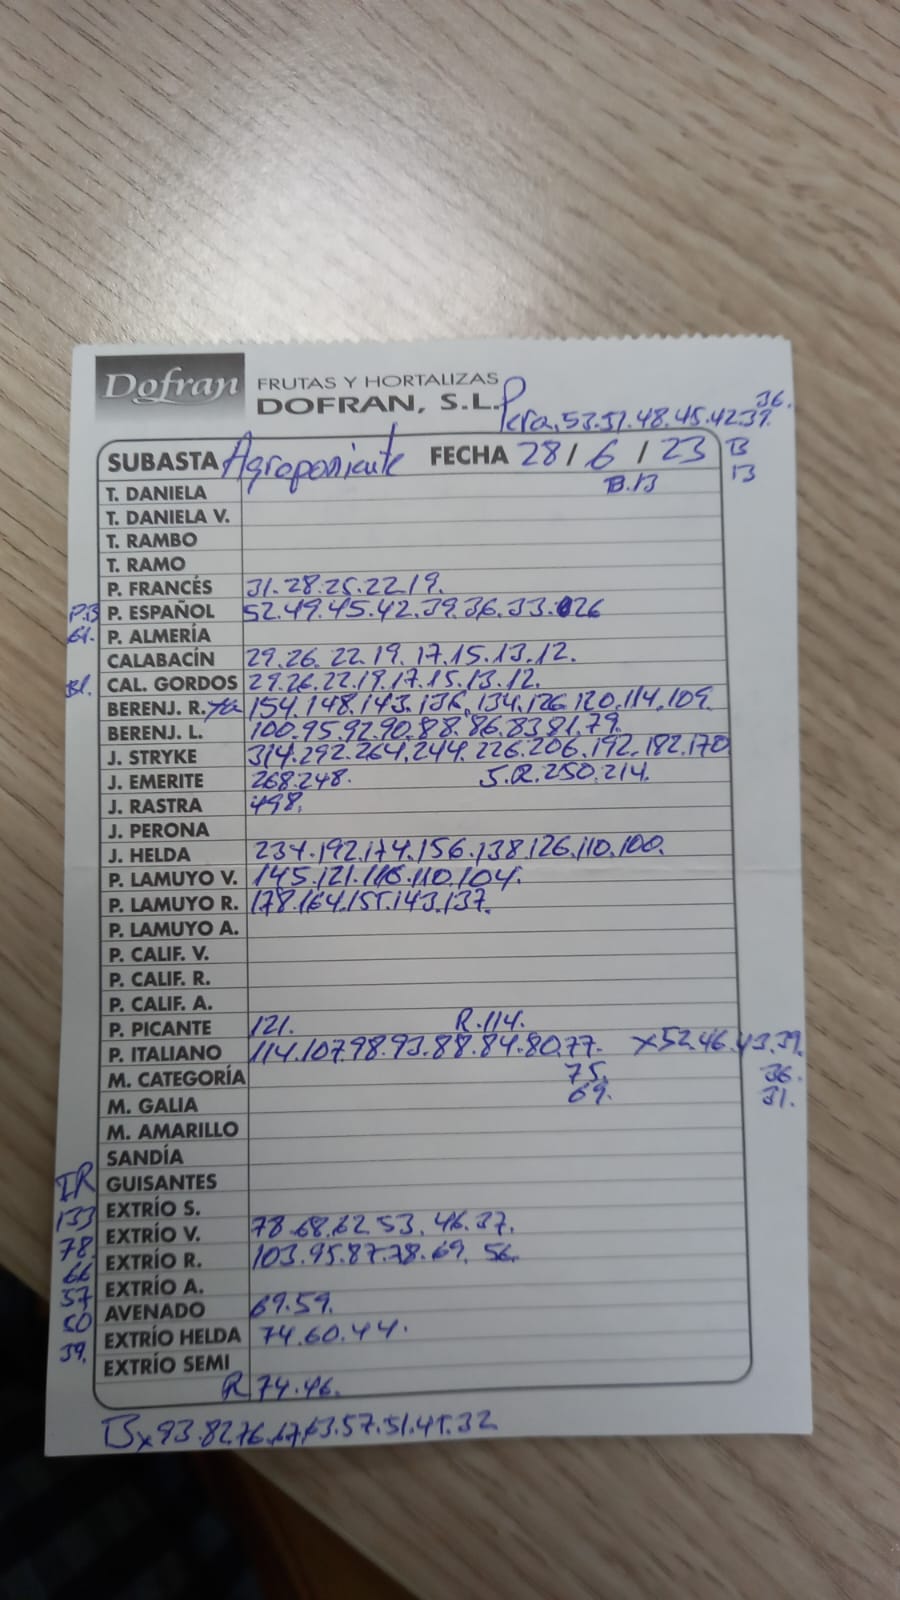 Dofran FRUTAS Y HORTALIZAS
DOFRAN, S.L.
36.
53.51.48.45.42.39.
SUBASTA Agroponiente FECHA 28/6/23 B
B.13 13
T. DANIELA
T. DANIELA V.
T. RAMBO
T. RAMO
P. FRANCÉS 31.28.25.22.19.
P.B P. ESPAÑOL 52.49.45.42.39.36.33.26
61. P. ALMERÍA
CALABACÍN 29.26.22.19.17.15.13.12.
Bl. CAL. GORDOS 29.26.22.19.17.15.13.12.
BERENJ. R. 154.148.143.136.134.126.120.114.109.
BERENJ. L. 100.95.92.90.88.86.83.81.79.
J. STRYKE 314.292.264.244.226.206.192.182.170
J. EMERITE 268.248. S.R.250.214.
J. RASTRA 498.
J. PERONA
J. HELDA 234.192.174.156.138.126.110.100.
P. LAMUYO V. 145.121.116.110.104.
P. LAMUYO R. 178.164.155.143.137.
P. LAMUYO A.
P. CALIF. V.
P. CALIF. R.
P. CALIF. A.
P. PICANTE 121. R.114.
P. ITALIANO 114.107.98.93.88.84.80.77. x52.46.43.39.
M. CATEGORÍA 75. 36.
M. GALIA 69. 31.
M. AMARILLO
SANDÍA
IR GUISANTES
133 EXTRÍO S.
78. EXTRÍO V. 78.68.62.53.46.37.
66 EXTRÍO R. 103.95.87.78.69.56.
57 EXTRÍO A.
50 AVENADO 69.59.
39. EXTRÍO HELDA 74.60.44.
EXTRÍO SEMI
R 74.46.
Bx93.82.76.67.63.57.51.45.32